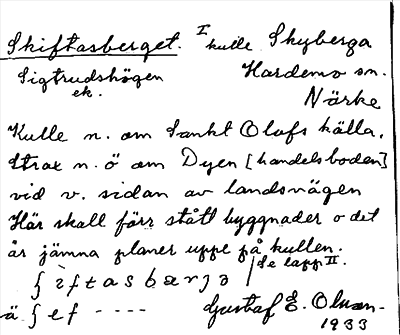 Skiftasberget. I kulle Skyberga
Sigtrudshögen Hardemo sn.
ek. Närke
Kulle n. om Sankt Olofs källa.
Strax n. ö om Dyen [handelsboden]
vid v. sidan av landsvägen
Här skall förr stått byggnader o det
är jämna planer uppe på kullen.
ʃìftasbærjə Se lapp II.
ä ʃef ---- Gustaf E. Olsson
1933